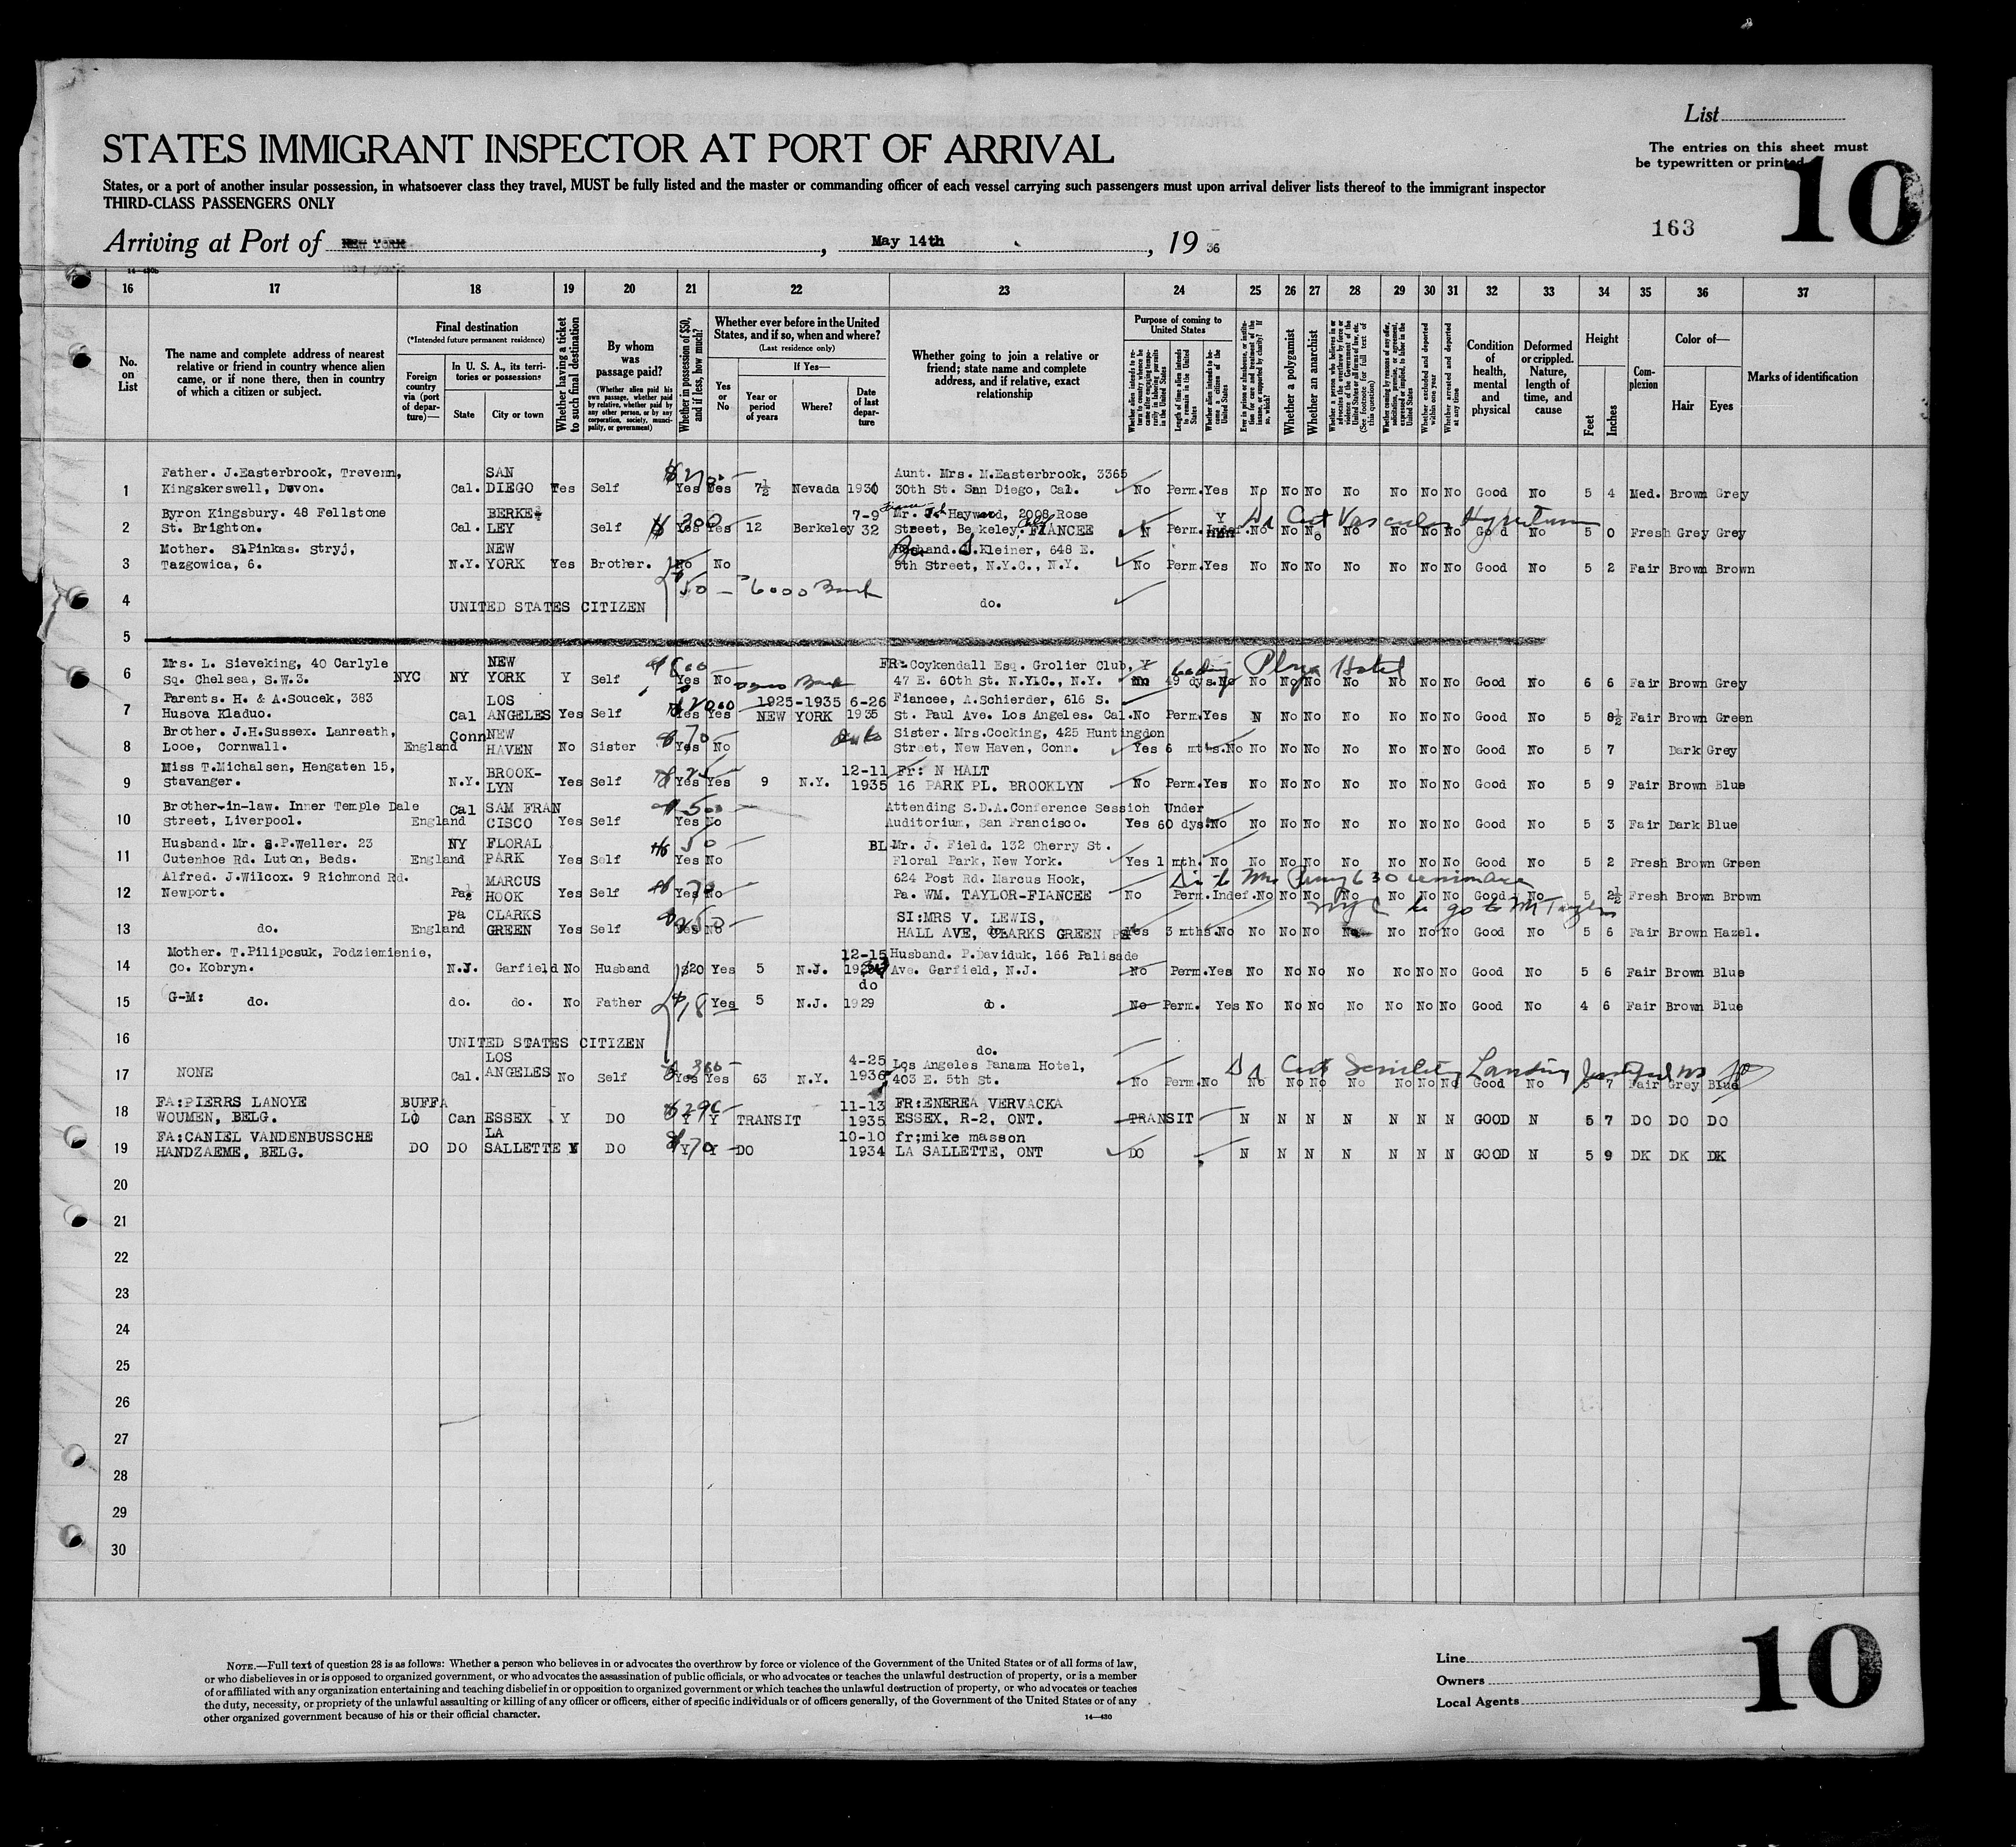 List
The entries on this sheet must
be typewritten or printed
10
STATES IMMIGRANT INSPECTOR AT PORT OF ARRIVAL
States, or a port of another insular possession, in whatsoever class they travel, MUST be fully listed and the master or commanding officer of each vessel carrying such passengers must upon arrival deliver lists thereof to the immigrant inspector
THIRD-CLASS PASSENGERS ONLY
163
Arriving at Port of NEW YORK, May 14th, 19 36
16 17 18 19 20 21 22 23 24 25 26 27 28 29 30 31 32 33 34 35 36 37
No. on List
The name and complete address of nearest
relative or friend in country whence alien
came, or if none there, then in country
of which a citizen or subject.
Final destination
(*Intended future permanent residence)
Foreign country via (port of departure)—
In U. S. A., its territories or possessions
State
City or town
Whether having a ticket to such final destination
By whom was passage paid?
(Whether alien paid his own passage, whether paid by relative, whether paid by any other person, or by any corporation, society, municipality, or government)
Whether in possession of $50, and if less, how much?
Whether ever before in the United States, and if so, when and where?
(Last residence only)
Yes or No
If Yes—
Year or period of years
Where?
Date of last departure
Whether going to join a relative or
friend; state name and complete
address, and if relative, exact
relationship
Purpose of coming to United States
Whether a polygamist
Whether an anarchist
Whether excluded and deported within one year
Whether arrested and deported at any time
Condition of health, mental and physical
Deformed or crippled. Nature, length of time, and cause
Height
Feet
Inches
Complexion
Color of—
Hair
Eyes
Marks of identification
1 Father. J.Easterbrook, Trevenn, Kingskerswell, Devon. Cal. SAN DIEGO Yes Self Yes Yes 7½ Nevada Aunt. Mrs. M.Easterbrook, 3365 30th St. San Diego, Cal. No Perm. Yes No No No No No No No Good No 5 4 Med. Brown Grey
2 Byron Kingsbury. 48 Fellstone St. Brighton. Cal. BERKELEY Self $300 Yes Yes 12 Berkeley 7-9 32 Mr. Hayward, 2008 Rose Street, Berkeley. FIANCEE N Perm. No No No No No No No Good No 5 0 Fresh Grey Grey
3 Mother. S.Pinkas. Stryj, Tazgowica, 6. N.Y. NEW YORK Yes Brother. No No Kleiner, 648 E. 5th Street, N.Y.C., N.Y. No Perm. Yes No No No No No No No Good No 5 2 Fair Brown Brown
4 UNITED STATES CITIZEN 50 6000 Bank do.
5
6 Mrs. L. Sieveking, 40 Carlyle Sq. Chelsea, S.W.3. NYC NY NEW YORK Y Self Yes No FR-Coykendall Esq. Grolier Club, 47 E. 60th St. N.Y.C., N.Y. 49 dys. No Plaza Hotel No No No No No No No Good No 6 6 Fair Brown Grey
7 Parents. H. & A.Soucek, 383 Husova Kladuo. Cal LOS ANGELES Yes Self Yes Yes 1925-1935 NEW YORK 6-26 1935 Fiancee, A.Schierder, 616 S. St. Paul Ave. Los Angeles. Cal. No Perm. Yes N No No No No No No Good No 5 8½ Fair Brown Green
8 Brother. J.H.Sussex. Lanreath, Looe, Cornwall. England Conn NEW HAVEN No Sister 70 Yes No Sister. Mrs.Cocking, 425 Huntingdon Street, New Haven, Conn. Yes 6 mths. No No No No No No No No Good No 5 7 Dark Grey
9 Miss T.Michalsen, Hengaten 15, Stavanger. N.Y. BROOK-LYN Yes Self Yes Yes 9 N.Y. 12-11 1935 Fr: N HALT 16 PARK PL. BROOKLYN No Perm. Yes No No No No No No No Good No 5 9 Fair Brown Blue
10 Brother-in-law. Inner Temple Dale Street, Liverpool. England Cal SAM FRAN CISCO Yes Self 500 Yes No Attending S.D.A.Conference Session Under Auditorium, San Francisco. Yes 60 dys. No No No No No No No No Good No 5 3 Fair Dark Blue
11 Husband. Mr. S.P.Weller. 23 Cutenhoe Rd. Luton, Beds. England NY FLORAL PARK Yes Self 50 Yes No BL-Mr. J. Field. 132 Cherry St. Floral Park, New York. Yes 1 mth. No No No No No No No No Good No 5 2 Fresh Brown Green
12 Alfred. J.Wilcox. 9 Richmond Rd. Newport. Pa. MARCUS HOOK Yes Self 70 Yes No 624 Post Rd. Marcus Hook, Pa. WM. TAYLOR-FIANCEE No Perm. Indef. No No No No No No No Good No 5 2½ Fresh Brown Brown
13 do. England Pa CLARKS GREEN Yes Self 50 Yes No SI:MRS V. LEWIS, HALL AVE, CLARKS GREEN Pa Yes 3 mths. No No No No No No No No Good No 5 6 Fair Brown Hazel.
14 Mother. T.Pilipcsuk, Podziemienie, Co. Kobryn. N.J. Garfield No Husband $20 Yes 5 N.J. 12-15 Husband. P.Daviduk, 166 Palisade Ave. Garfield, N.J. No Perm. Yes No No No No No No No Good No 5 6 Fair Brown Blue
15 G-M: do. do. do. No Father Yes 5 N.J. do 1929 do. No Perm. Yes No No No No No No No Good No 4 6 Fair Brown Blue
16 UNITED STATES CITIZEN do.
17 NONE Cal. LOS ANGELES No Self Yes Yes 63 N.Y. 4-25 1936 Los Angeles Panama Hotel, 403 E. 5th St. No Perm. No No No No No No No No Good No 5 7 Fair Grey Blue
18 FA:PIERRS LANOYE WOUMEN, BELG. BUFFALO Can ESSEX Y DO Y Y TRANSIT 11-13 1935 FR:ENEREA VERVACKA ESSEX, R-2, ONT. TRANSIT N N N N N N N GOOD N 5 7 DO DO DO
19 FA:CANIEL VANDENBUSSCHE HANDZAEME, BELG. DO DO LA SALLETTE Y DO 70 Y Y DO 10-10 1934 fr;mike masson LA SALLETTE, ONT DO N N N N N N N GOOD N 5 9 DK DK DK
20
21
22
23
24
25
26
27
28
29
30
NOTE.—Full text of question 28 is as follows: Whether a person who believes in or advocates the overthrow by force or violence of the Government of the United States or of all forms of law,
or who disbelieves in or is opposed to organized government, or who advocates the assassination of public officials, or who advocates or teaches the unlawful destruction of property, or is a member
of or affiliated with any organization entertaining and teaching disbelief in or opposition to organized government or which teaches the unlawful destruction of property, or who advocates or teaches
the duty, necessity, or propriety of the unlawful assaulting or killing of any officer or officers, either of specific individuals or of officers generally, of the Government of the United States or of any
other organized government because of his or their official character.
14—430
Line
Owners
Local Agents
10